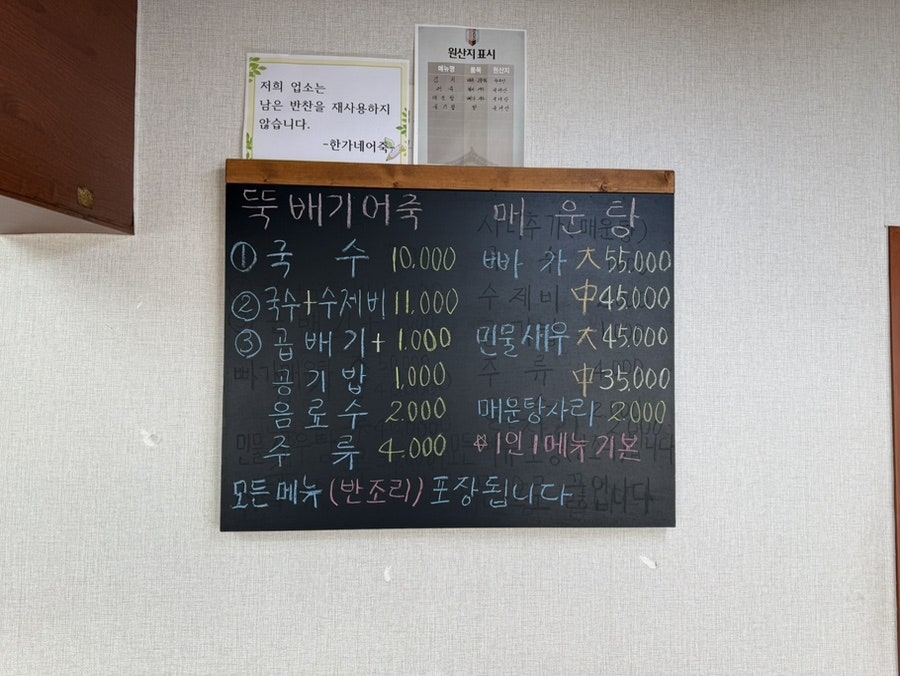 저희 업소는
남은 반찬을 재사용하지
않습니다.
-한가네어죽-
원산지 표시
메뉴명 품목 원산지
뚝배기어죽
① 국 수 10,000
② 국수+수제비 11,000
③ 곱배기+ 1,000
공기밥 1,000
음료수 2,000
주 류 4,000
매 운 탕
빠 가 大 55,000
中 45,000
민물새우 大 45,000
中 35,000
매운탕사리 2,000
☆1인 1메뉴 기본
모든메뉴 (반조리) 포장됩니다